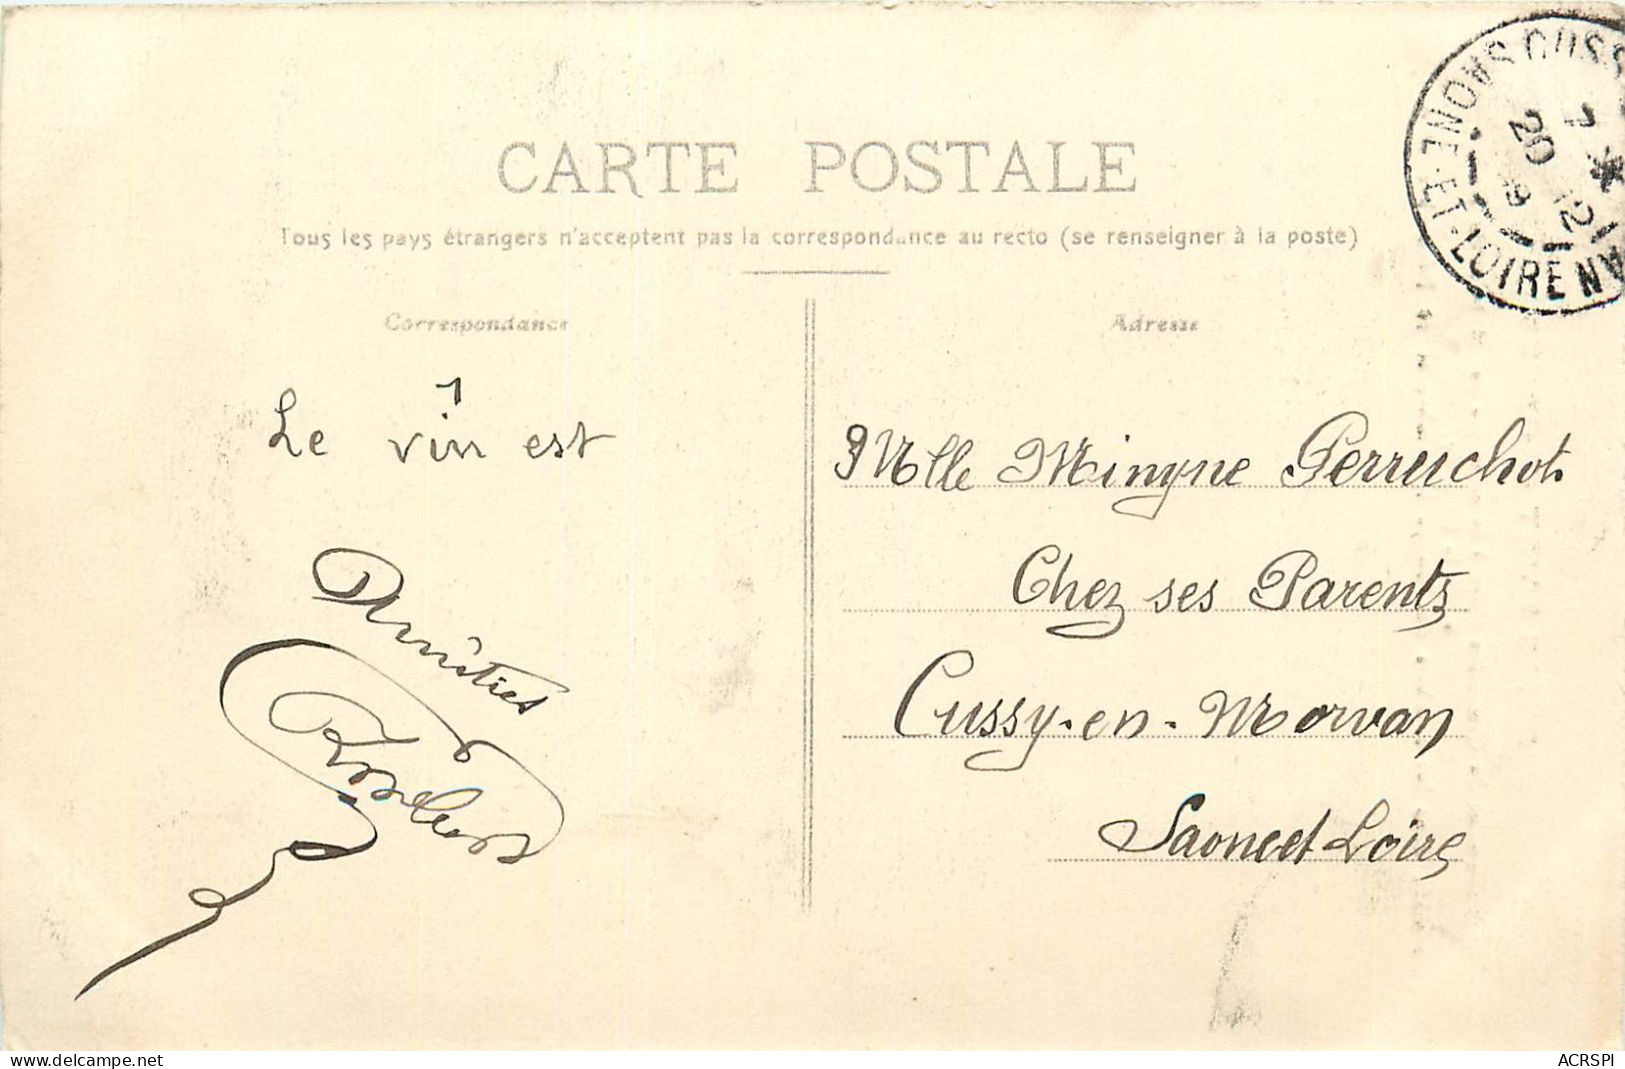 CARTE POSTALE
Tous les pays étrangers n'acceptent pas la correspondance au recto (se renseigner à la poste)
Correspondance
Adresse
SAONE-ET-LOIRE
20
12
Le vin est
1
Amitiés
Mlle Mimyne Perruchot
Chez ses Parents
Cussy-en-Morvan
Saone et Loire
www.delcampe.net
ACRSPI